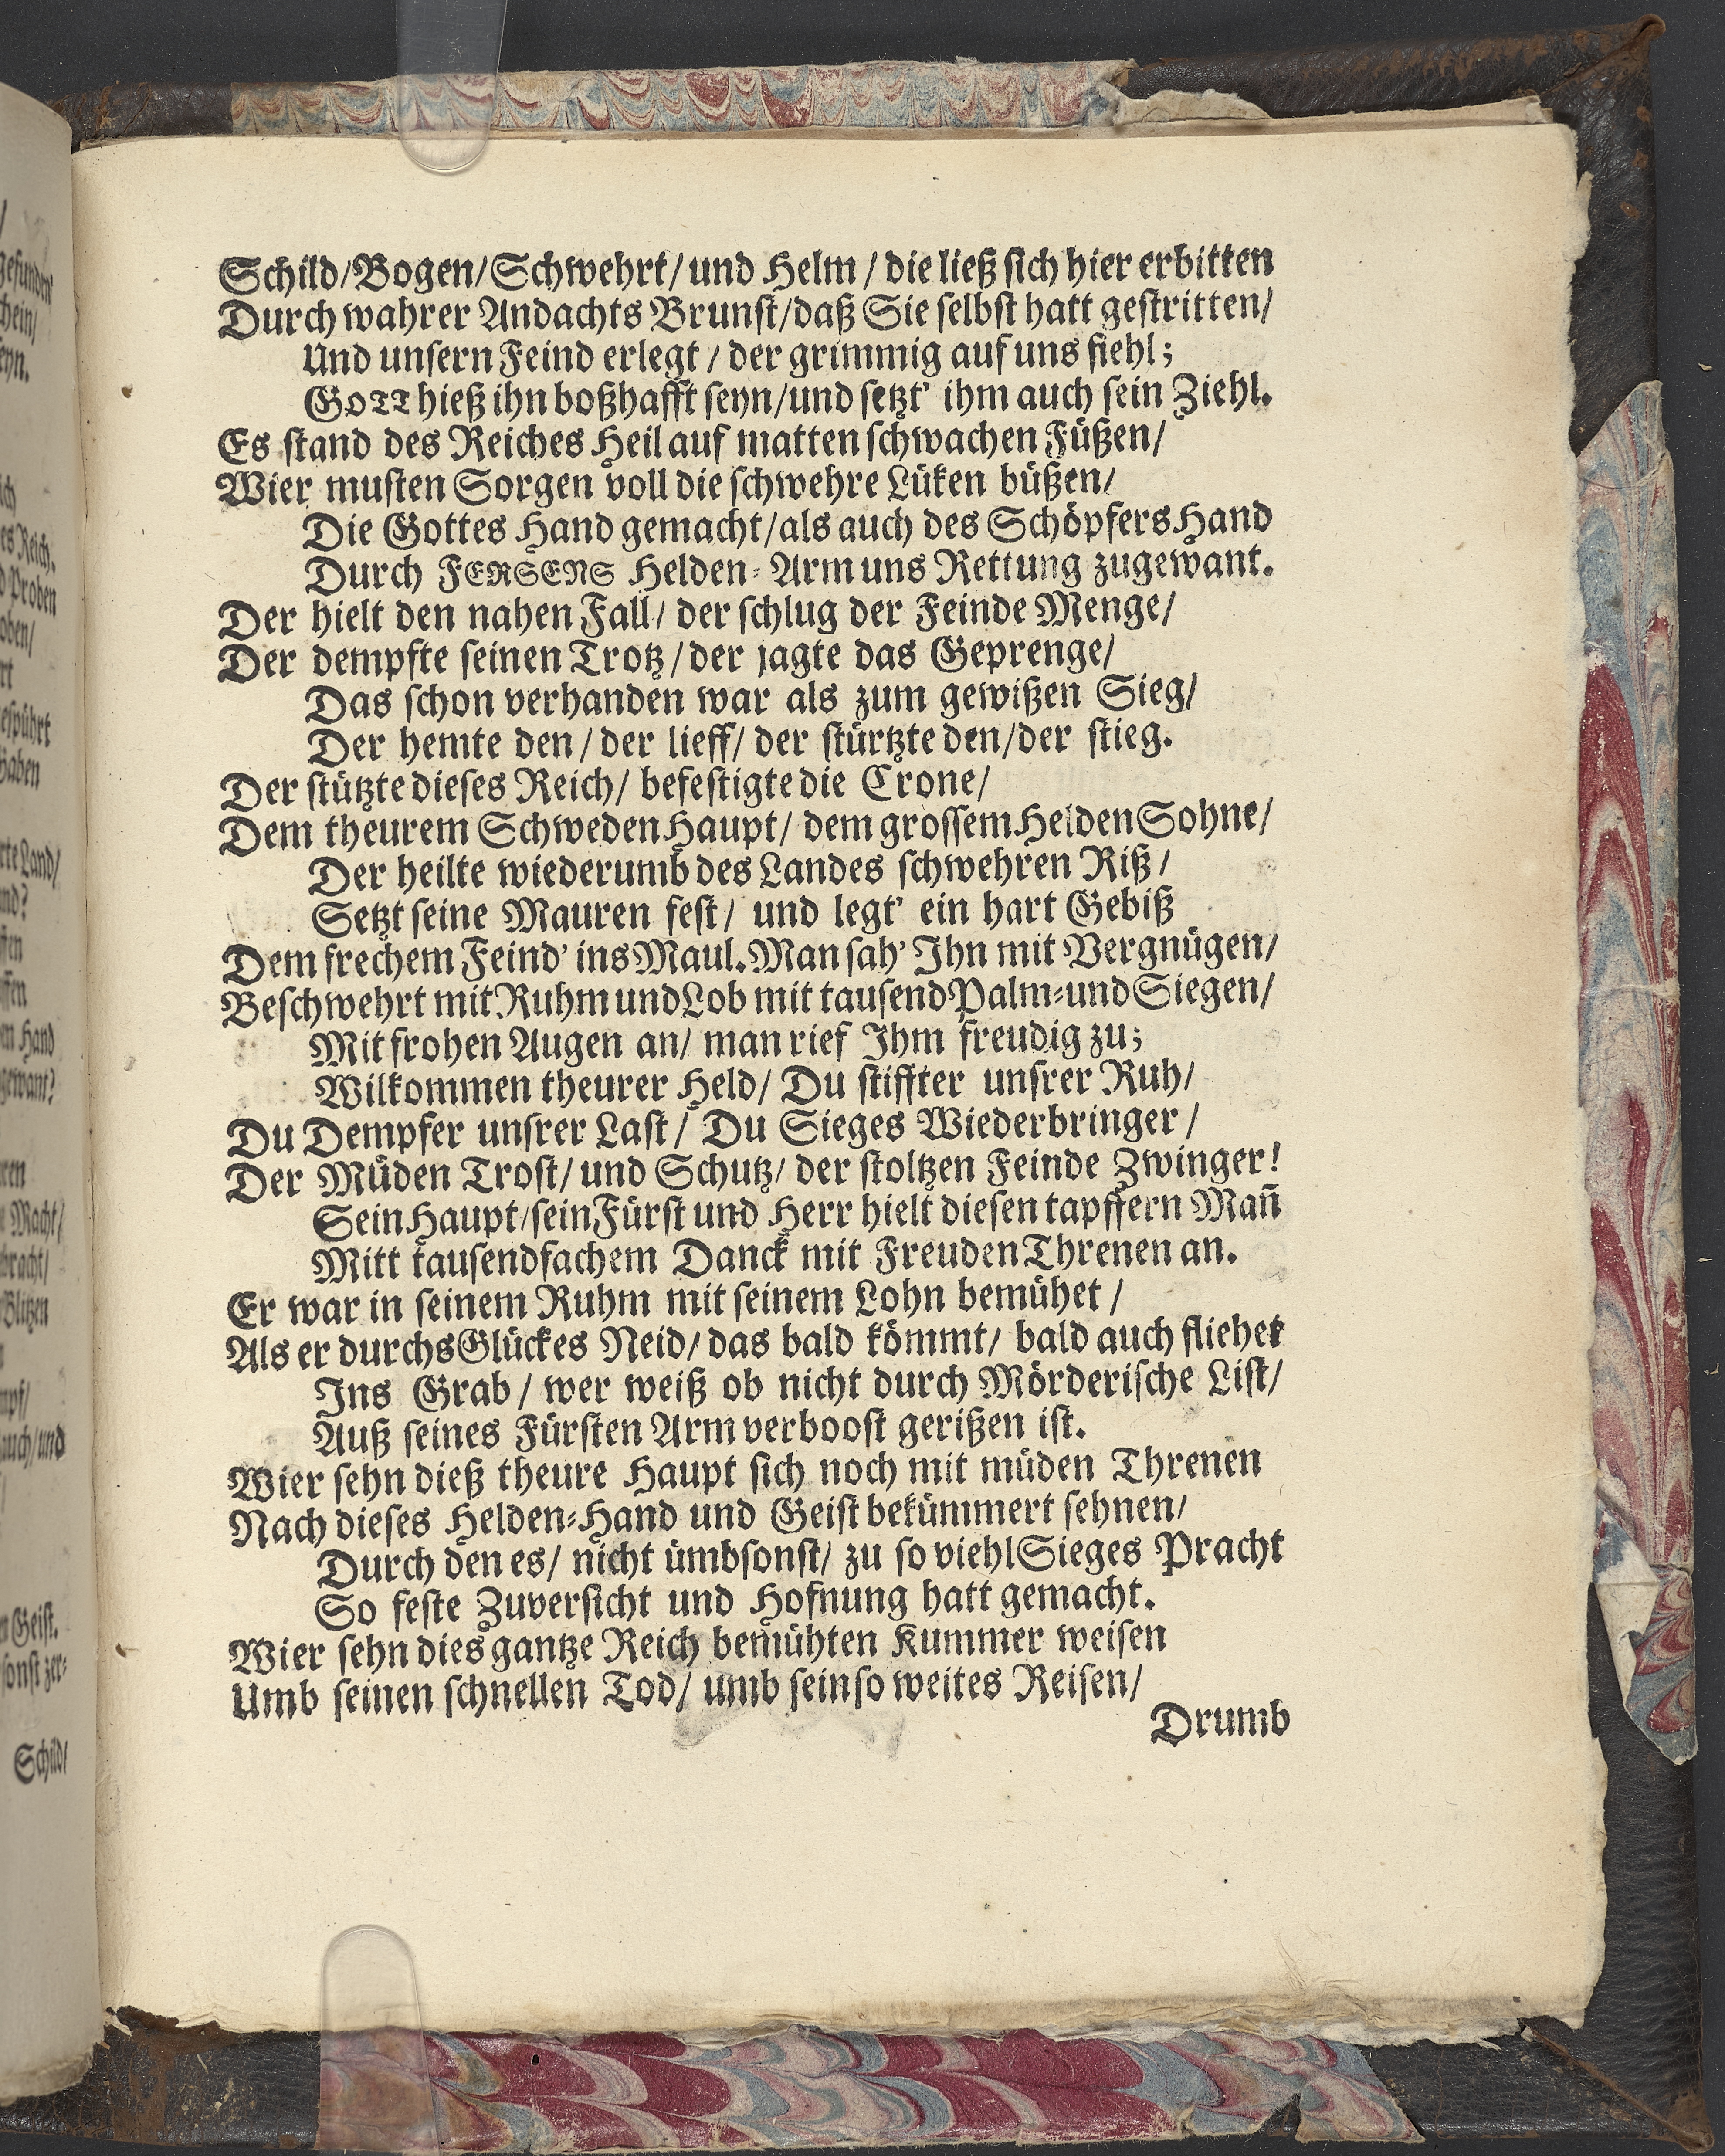 Schild/Bogen/Schwehrt/ und Helm / die ließ sich hier erbitten
Durch wahrer Andachts Brunst/daß Sie selbst hatt gestritten/
Und unsern Feind erlegt / der grimmig auf uns fiehl;
GOTT hieß ihn boßhafft seyn/und setzt' ihm auch sein Ziehl.
Es stand des Reiches Heil auf matten schwachen Füßen/
Wier musten Sorgen voll die schwehre Lüken büßen/
Die Gottes Hand gemacht/als auch des Schöpfers Hand
Durch FERSENS Helden-Arm uns Rettung zugewant.
Der hielt den nahen Fall/ der schlug der Feinde Menge/
Der dempfte seinen Trotz/der jagte das Geprenge/
Das schon verhanden war als zum gewißen Sieg/
Der hemte den/der lieff/ der stürtzte den/der stieg.
Der stützte dieses Reich/ befestigte die Crone/
Dem theurem Schweden Haupt/ dem grossem Helden Sohne/
Der heilte wiederumb des Landes schwehren Riß/
Setzt seine Mauren fest/ und legt' ein hart Gebiß
Dem frechem Feind' ins Maul. Man sah' Ihn mit Vergnügen/
Beschwehrt mit Ruhm und Lob mit tausend Palm-und Siegen/
Mit frohen Augen an/ man rief Ihm freudig zu;
Wilkommen theurer Held/ Du stiffter unsrer Ruh/
Du Dempfer unsrer Last/ Du Sieges Wiederbringer/
Der Müden Trost/ und Schutz/ der stoltzen Feinde Zwinger!
Sein Haupt/sein Fürst und Herr hielt diesen tapffern Mañ
Mitt tausendfachem Danck mit Freuden Threnen an.
Er war in seinem Ruhm mit seinem Lohn bemühet /
Als er durchs Glückes Neid/ das bald kömmt/ bald auch fliehet
Ins Grab / wer weiß ob nicht durch Mörderische List/
Auß seines Fürsten Arm verboost gerißen ist.
Wier sehn dieß theure Haupt sich noch mit müden Threnen
Nach dieses Helden-Hand und Geist bekümmert sehnen/
Durch den es/ nicht ümbsonst/ zu so viehl Sieges Pracht
So feste Zuversicht und Hofnung hatt gemacht.
Wier sehn dies gantze Reich bemühten Kummer weisen
Umb seinen schnellen Tod/ umb sein so weites Reisen/
Drumb